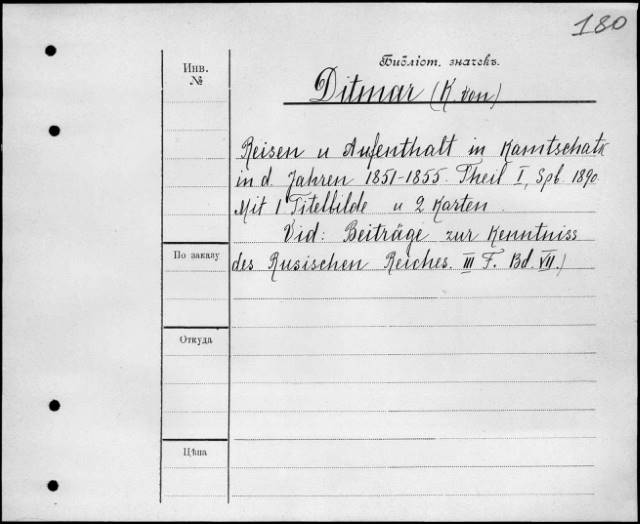 180
Библiот. значекъ.
Инв.
№
Ditmar (K. von)
Reisen u Aufenthalt in Kamtschatk
in d. Jahren 1851-1855. Theil I, Spb. 1890.
Mit 1 Titelbilde u 2 Karten.
Vid: Beiträge zur Kenntniss
По заказу
des Rusischen Reiches. III F. Bd. VII.)
Откуда
Цѣна